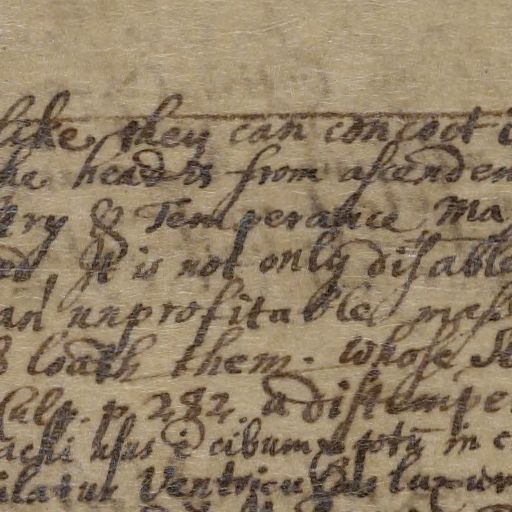 like they can concoct i
he heads from ascenden
try & Temperance, ma
ed, It is not only disable
an unprofitable mass
& loath them. whose St
Culp. p. 282. a distempe
usus è cibum & potū in c
ilatur Ventriculus luxur